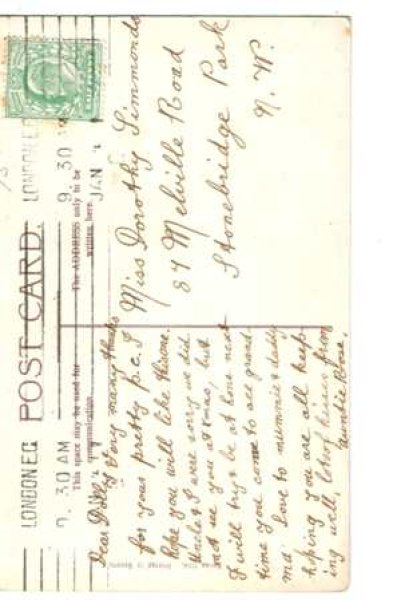 POST CARD.
This space may be used for
communication.
The ADDRESS only to be
written here.
LONDON EC
9. 30 AM
LONDON EC
9. 30
JAN
Dear Dolly Very many thanks
for your pretty p.c. I
hope you will like this one.
Uncle & I were sorry we did
not see you at Xmas, but
I will try & be at home next
time you come to see grand
ma. Love to mummie & daddy
hoping you are all keep-
ing well, lots of kisses from
Auntie Rose.
Miss Dorothy Simmonds
87 Melville Road
Stonebridge Park
N. W.